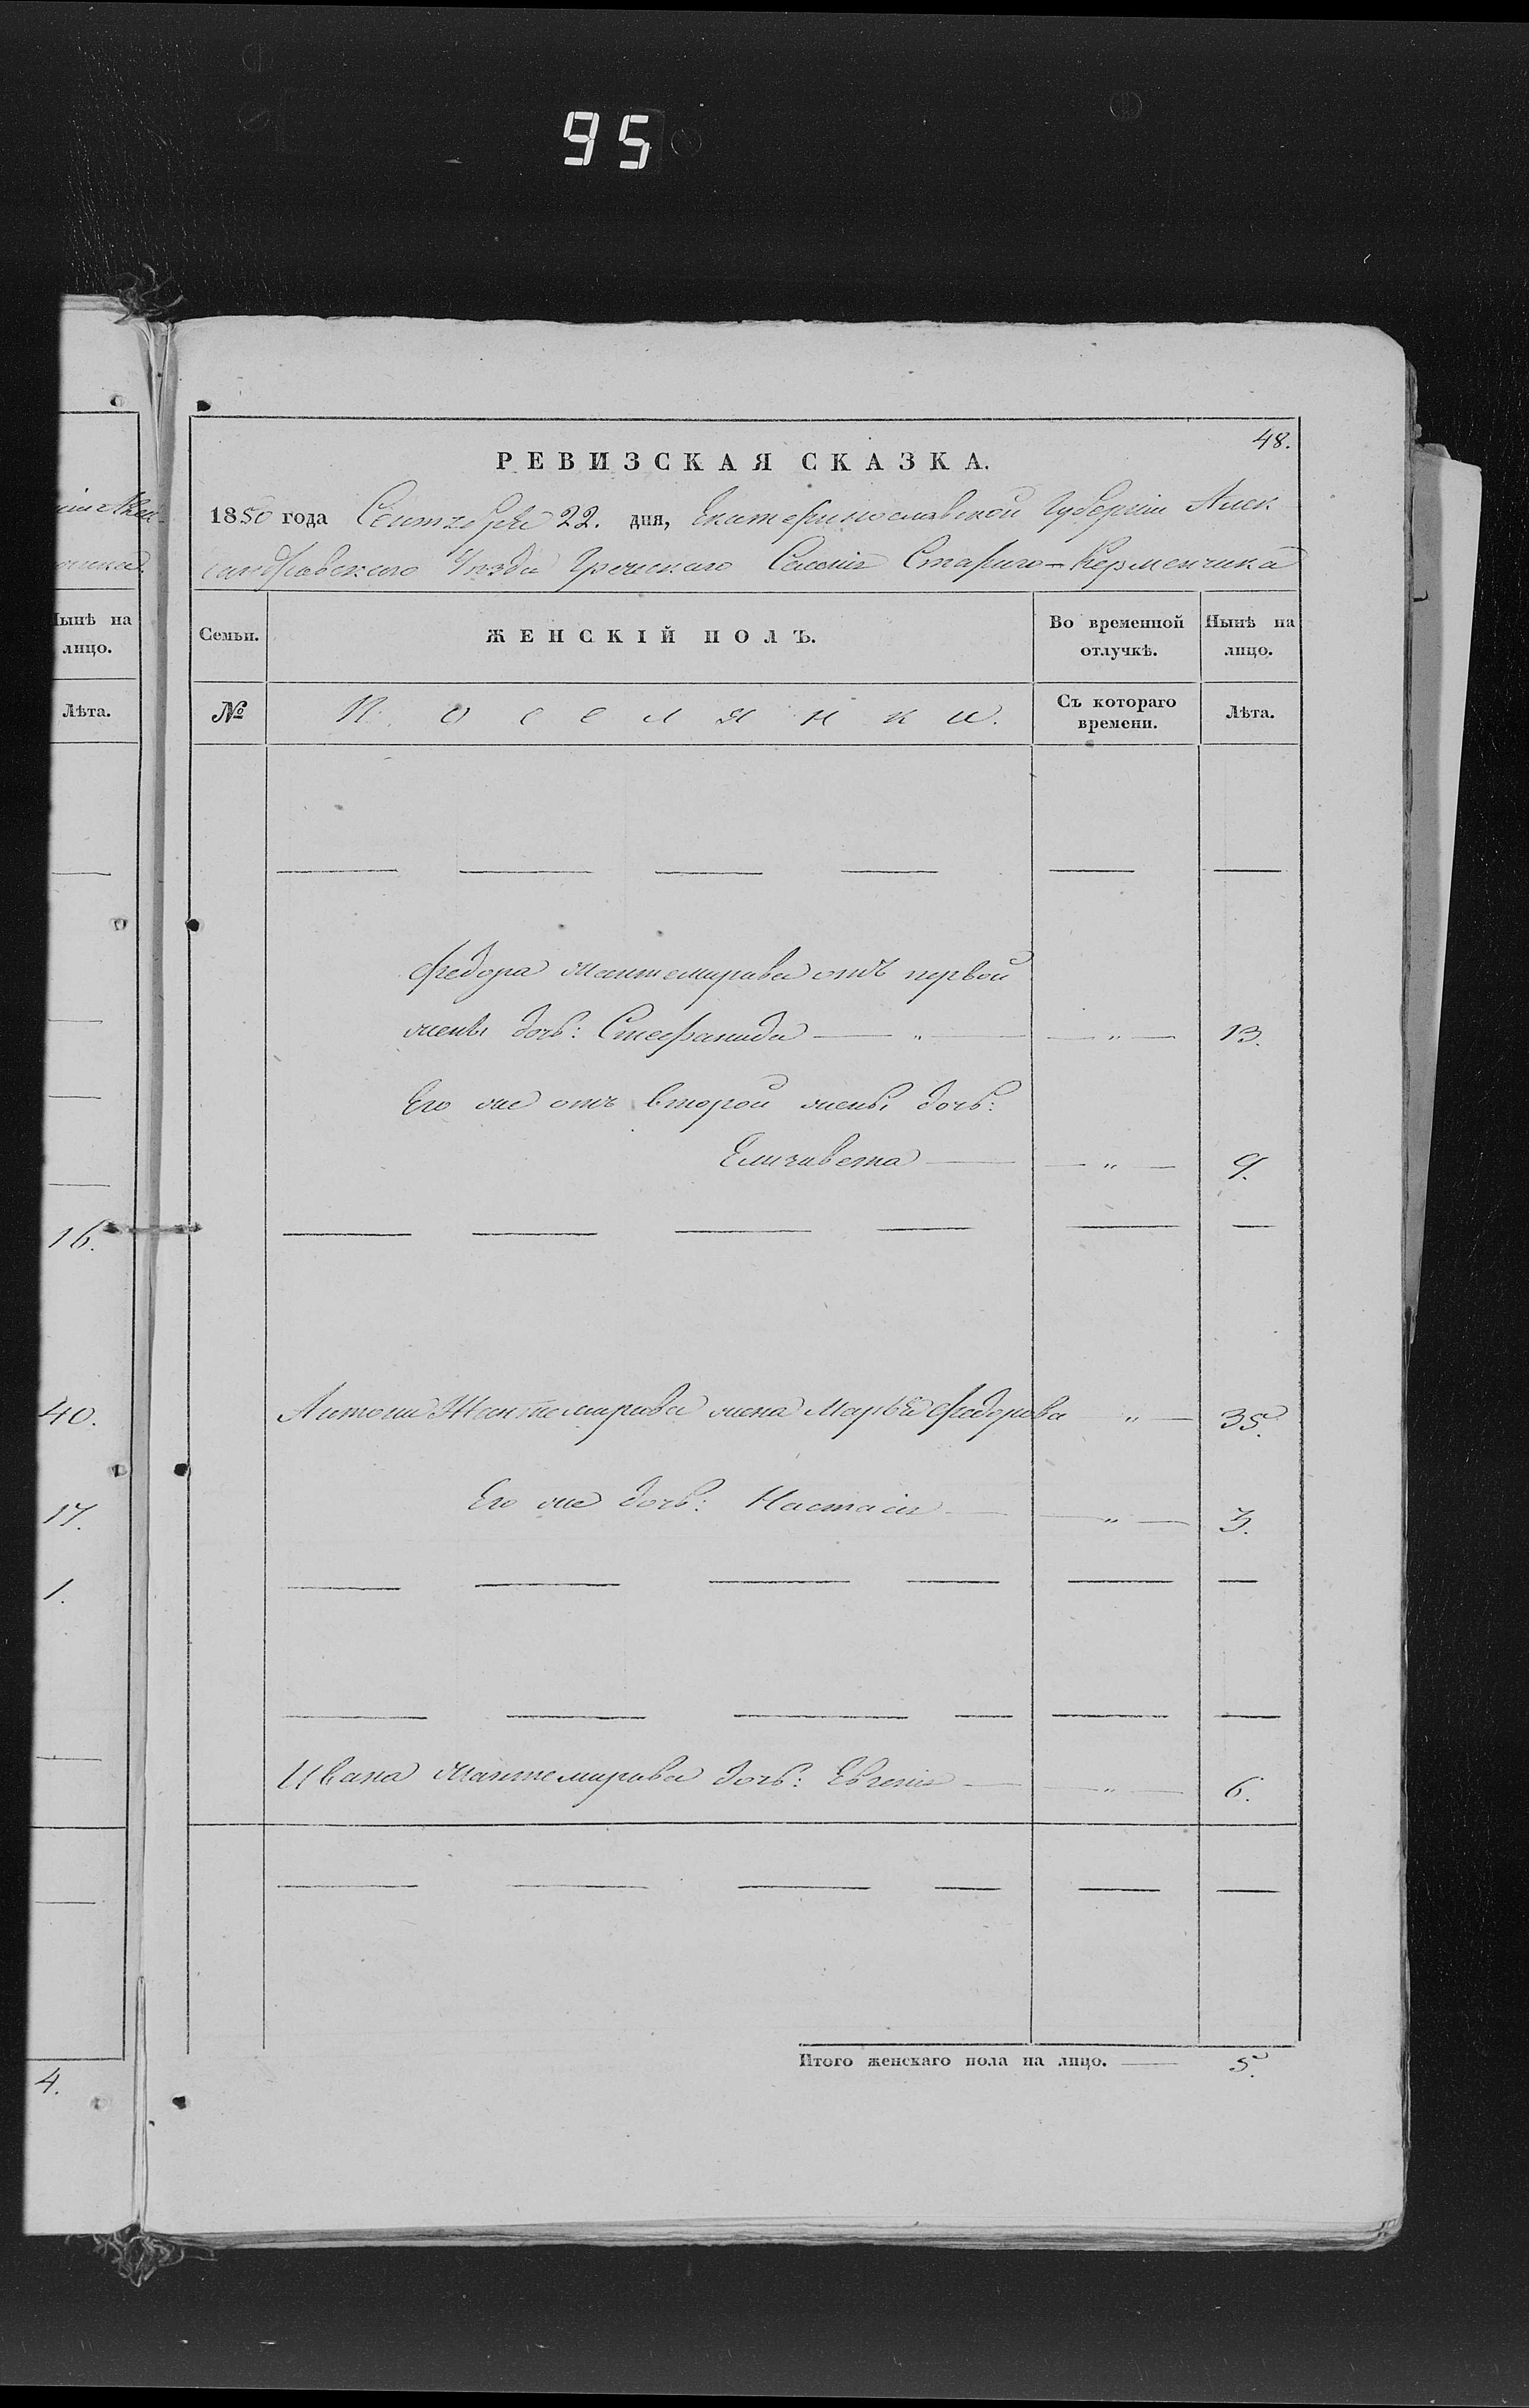 95
48.
РЕВИЗСКАЯ СКАЗКА.
1850 года Сентября 22. дня, Екатеринославской Губернии Алек
сандровского Уѣзда Греческаго Селенія Стараго-Керменчика
Семьи.
ЖЕНСКІЙ ПОЛЪ.
Во временной отлучкѣ.
Нынѣ на лицо.
№
Поселянки.
Съ котораго времени.
Лѣта.
Федора Жантемирова отъ первой
жены дочь: Стефанида — " — — " — 13.
Его же отъ второй жены дочь:
Елизавета — — " — 9.
Антона Жантемирова жена Марья Федорова " — 35.
Его же дочь: Настасія — — " — 3.
Ивана Жантемирова дочь: Евгенія — — " — 6.
Итого женскаго пола на лицо. — 5.
Нынѣ на
лицо.
Лѣта.
16.
40.
17.
1.
4.